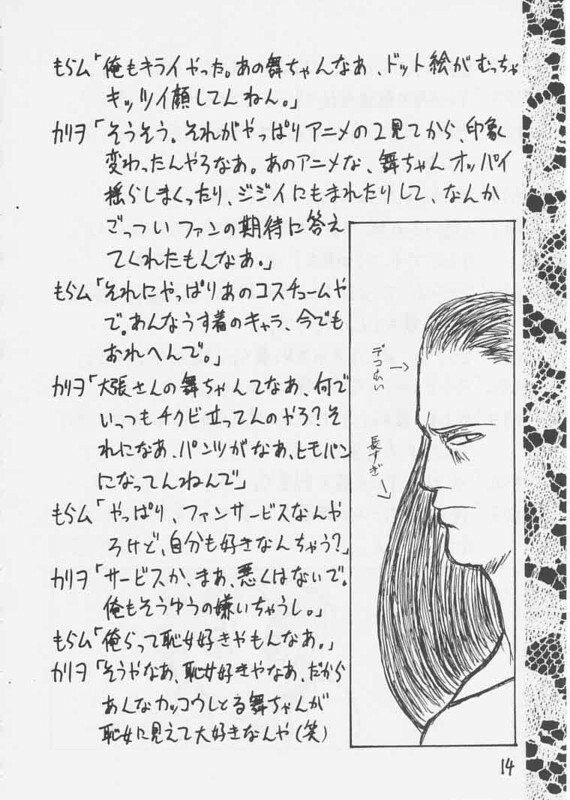 もらム「俺もキライやった。あの舞ちゃんなあ、ドット絵がむっちゃ
キッツイ顔してんねん。」
カリヲ「そうそう。それがやっぱりアニメの2見てから、印象
変わったんやろなあ。あのアニメな、舞ちゃんオッパイ
揺らしまくったり、ジジイにもまれたりして、なんか
ごっついファンの期待に答え
てくれたもんなあ。」
もらム「それにやっぱりあのコスチュームや
で。あんなうす着のキャラ、今でも
おれへんで。」
カリヲ「大張さんの舞ちゃんてなあ、何で
いっつもチクビ立ってんのやろ?そ
れになあ、パンツがなあ、ヒモパン
になってんねんで」
もらム「やっぱり、ファンサービスなんや
ろけど、自分も好きなんちゃう?」
カリヲ「サービスか、まあ、悪くはないで。
俺もそうゆうの嫌いちゃうし。」
もらム「俺らって恥女好きやもんなあ。」
カリヲ「そうやなあ、恥女好きやなあ、だから
あんなカッコウしとる舞ちゃんが
恥女に見えて大好きなんや(笑)
デコひろい
長すぎ
14